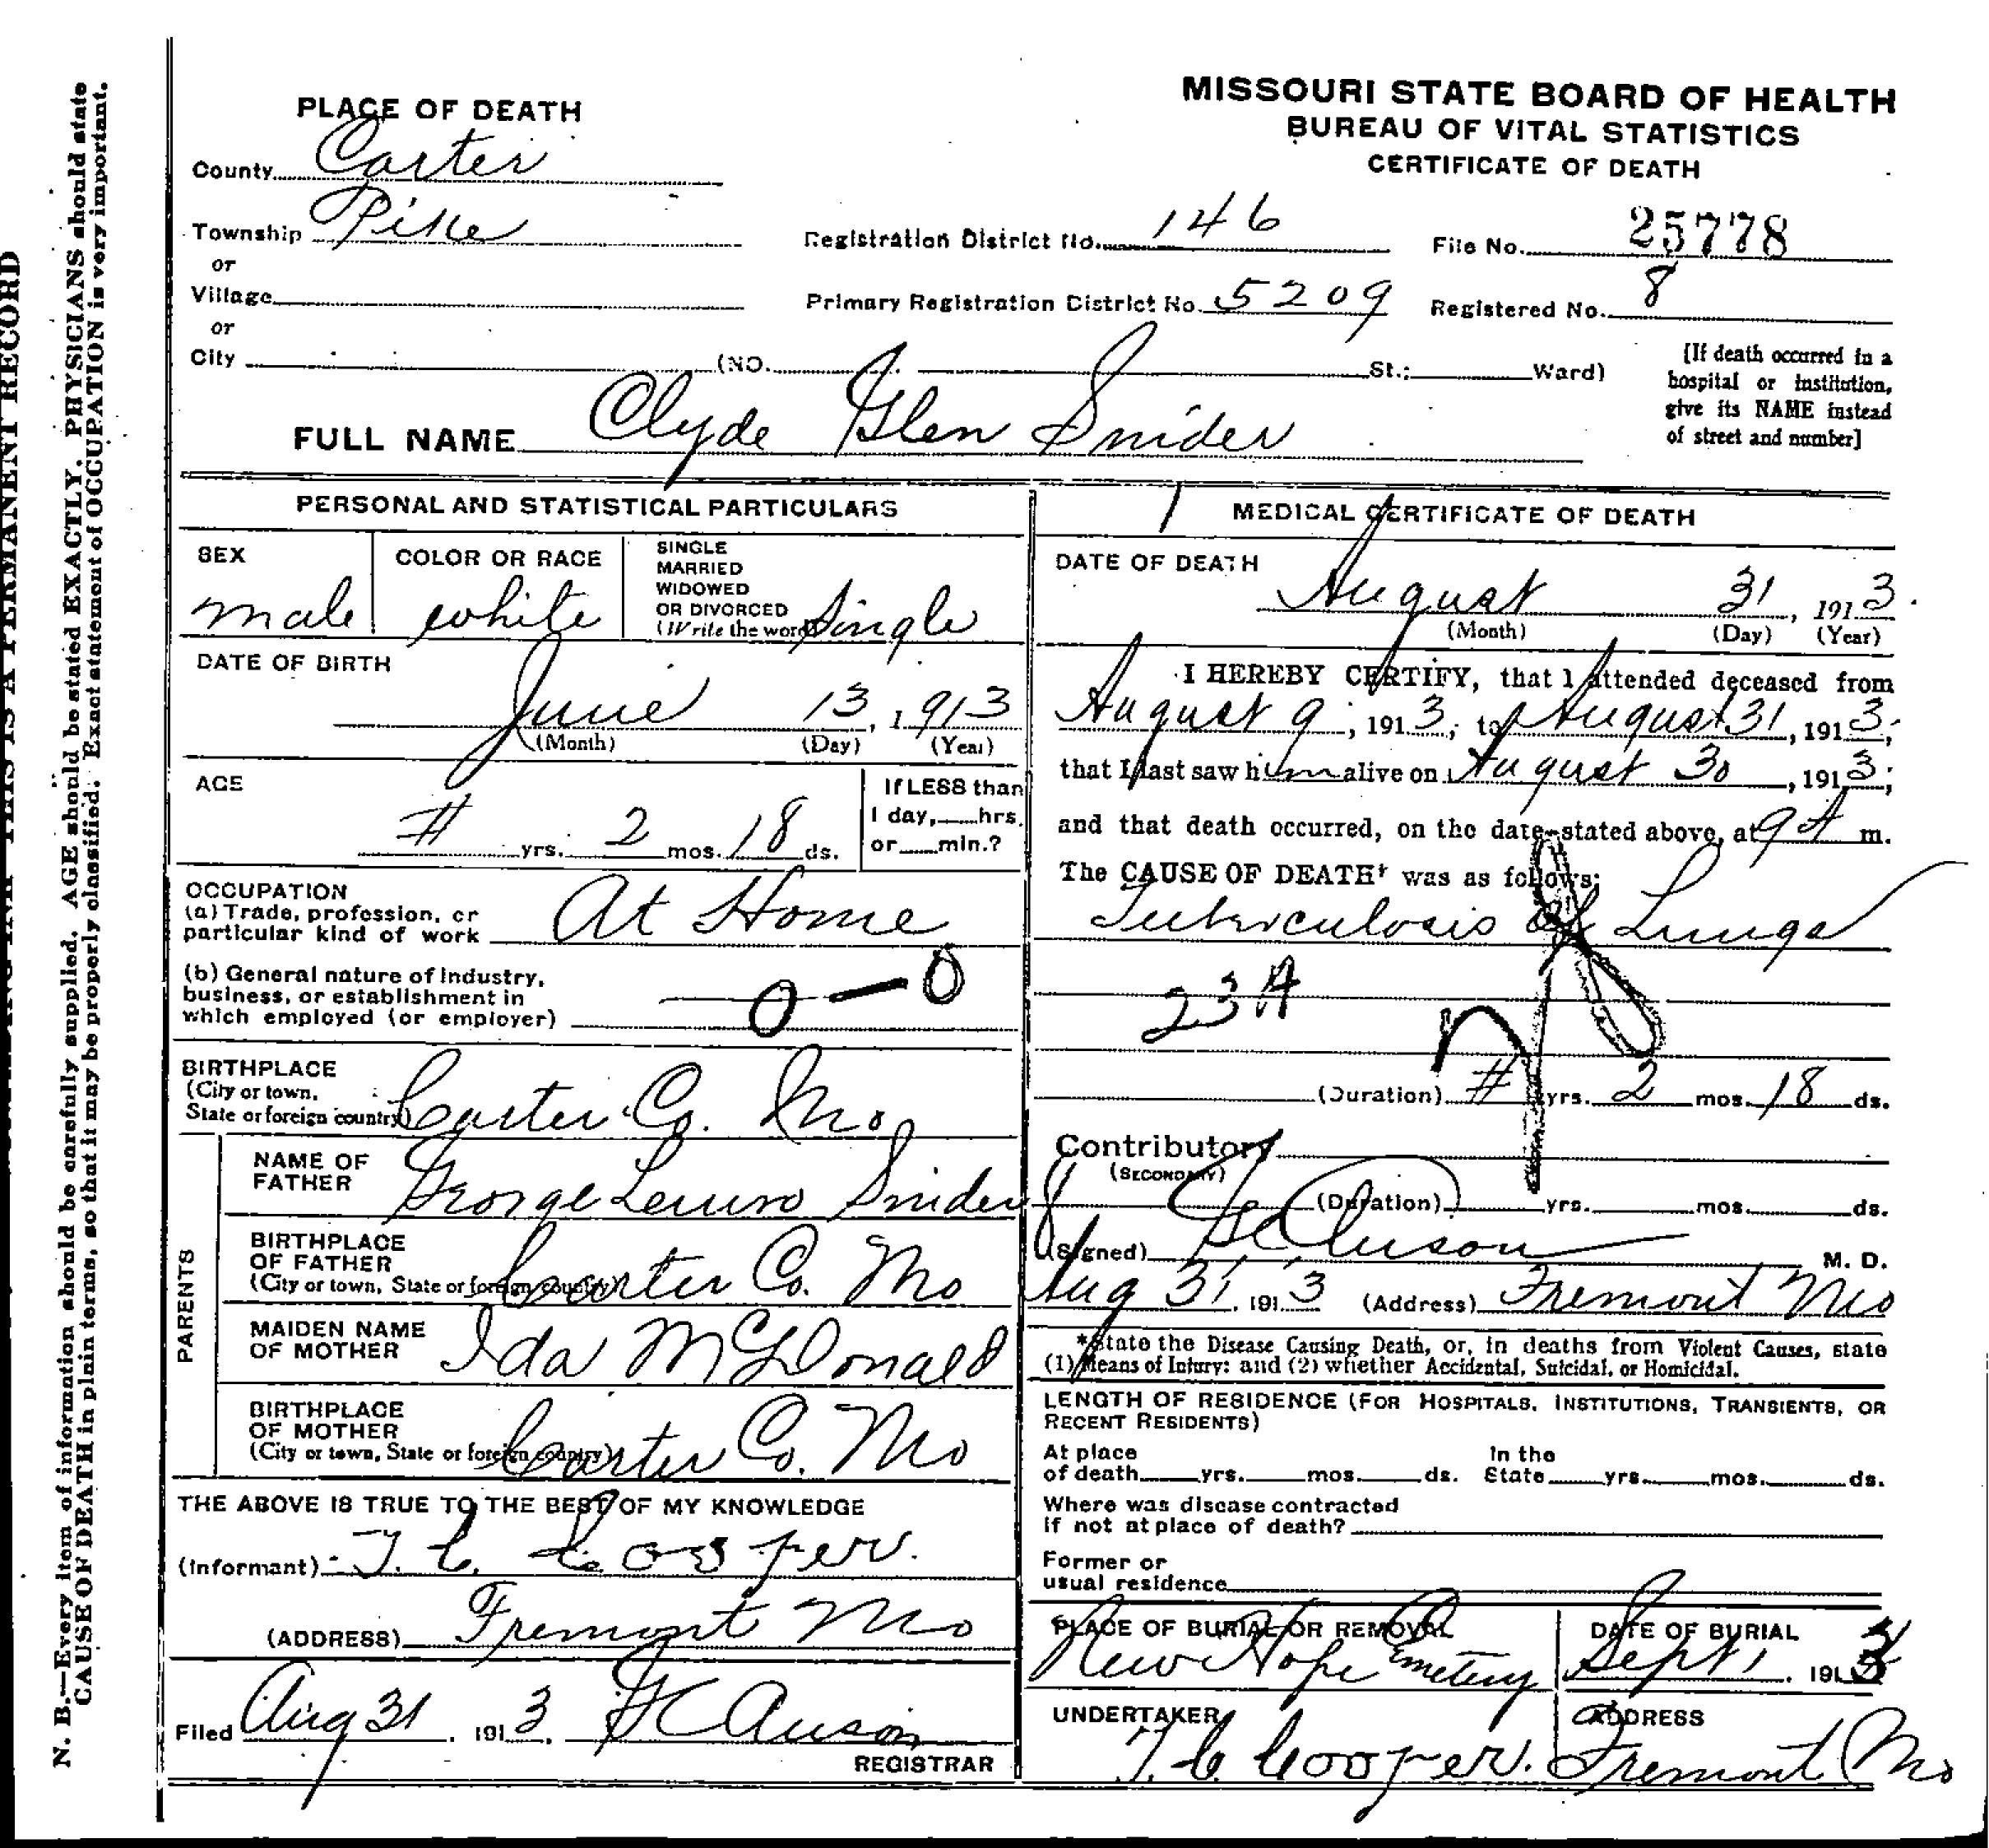 MISSOURI STATE BOARD OF HEALTH
BUREAU OF VITAL STATISTICS
CERTIFICATE OF DEATH
PLACE OF DEATH
County Carter
Township Pike
or
Village
or
City (NO. St.; Ward)
Registration District No. 146
File No. 25778
Primary Registration District No. 5209
Registered No. 8
[If death occurred in a
hospital or institution,
give its NAME instead
of street and number]
FULL NAME Clyde Glen Snider
PERSONAL AND STATISTICAL PARTICULARS
SEX
male
COLOR OR RACE
white
SINGLE
MARRIED
WIDOWED
OR DIVORCED
(Write the word) Single
DATE OF BIRTH
June 13, 1913
(Month) (Day) (Year)
AGE
# yrs. 2 mos. 18 ds.
If LESS than
1 day, hrs.
or min.?
OCCUPATION
(a) Trade, profession, or
particular kind of work At Home
(b) General nature of industry,
business, or establishment in
which employed (or employer) 0-0
BIRTHPLACE
(City or town,
State or foreign country) Carter Co. Mo
PARENTS
NAME OF
FATHER George Snider
BIRTHPLACE
OF FATHER
(City or town, State or foreign country) Carter Co. Mo
MAIDEN NAME
OF MOTHER Ida McDonald
BIRTHPLACE
OF MOTHER
(City or town, State or foreign country) Carter Co. Mo
THE ABOVE IS TRUE TO THE BEST OF MY KNOWLEDGE
(Informant) T. C. Cooper.
(ADDRESS) Fremont Mo
Filed Aug 31, 1913.
REGISTRAR
MEDICAL CERTIFICATE OF DEATH
DATE OF DEATH
August 31, 1913.
(Month) (Day) (Year)
I HEREBY CERTIFY, that I attended deceased from
August 9, 1913, to August 31, 1913,
that I last saw him alive on August 30, 1913;
and that death occurred, on the date stated above, at 9 A m.
The CAUSE OF DEATH* was as follows:
Tuberculosis of Lungs
23A
(Duration) # yrs. 2 mos. 18 ds.
Contributory
(SECONDARY)
(Duration) yrs. mos. ds.
(Signed) M. D.
Aug 31, 1913 (Address) Fremont Mo
*State the Disease Causing Death, or, in deaths from Violent Causes, state
(1) Means of Injury: and (2) whether Accidental, Suicidal, or Homicidal.
LENGTH OF RESIDENCE (FOR HOSPITALS, INSTITUTIONS, TRANSIENTS, OR
RECENT RESIDENTS)
At place
of death yrs. mos. ds.
In the
State yrs. mos. ds.
Where was disease contracted
if not at place of death?
Former or
usual residence
PLACE OF BURIAL OR REMOVAL
New Hope Cemetery
DATE OF BURIAL
Sept 1, 1913
UNDERTAKER
T. C. Cooper.
ADDRESS
Fremont Mo
N. B.—Every item of information should be carefully supplied. AGE should be stated EXACTLY. PHYSICIANS should state
CAUSE OF DEATH in plain terms, so that it may be properly classified. Exact statement of OCCUPATION is very important.
THIS IS A PERMANENT RECORD